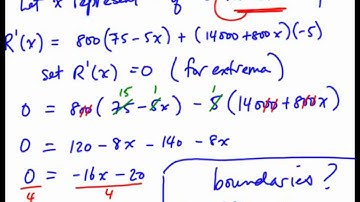 Let x represent of
R'(x) = 800(75-5x) + (14000+800x)(-5)
set R'(x) = 0 (for extrema)
0 = 800(75-5x) - 5(14000+800x)
15 1 1
0 = 120 - 8x - 140 - 8x
0/4 = -16x - 20/4
boundaries?